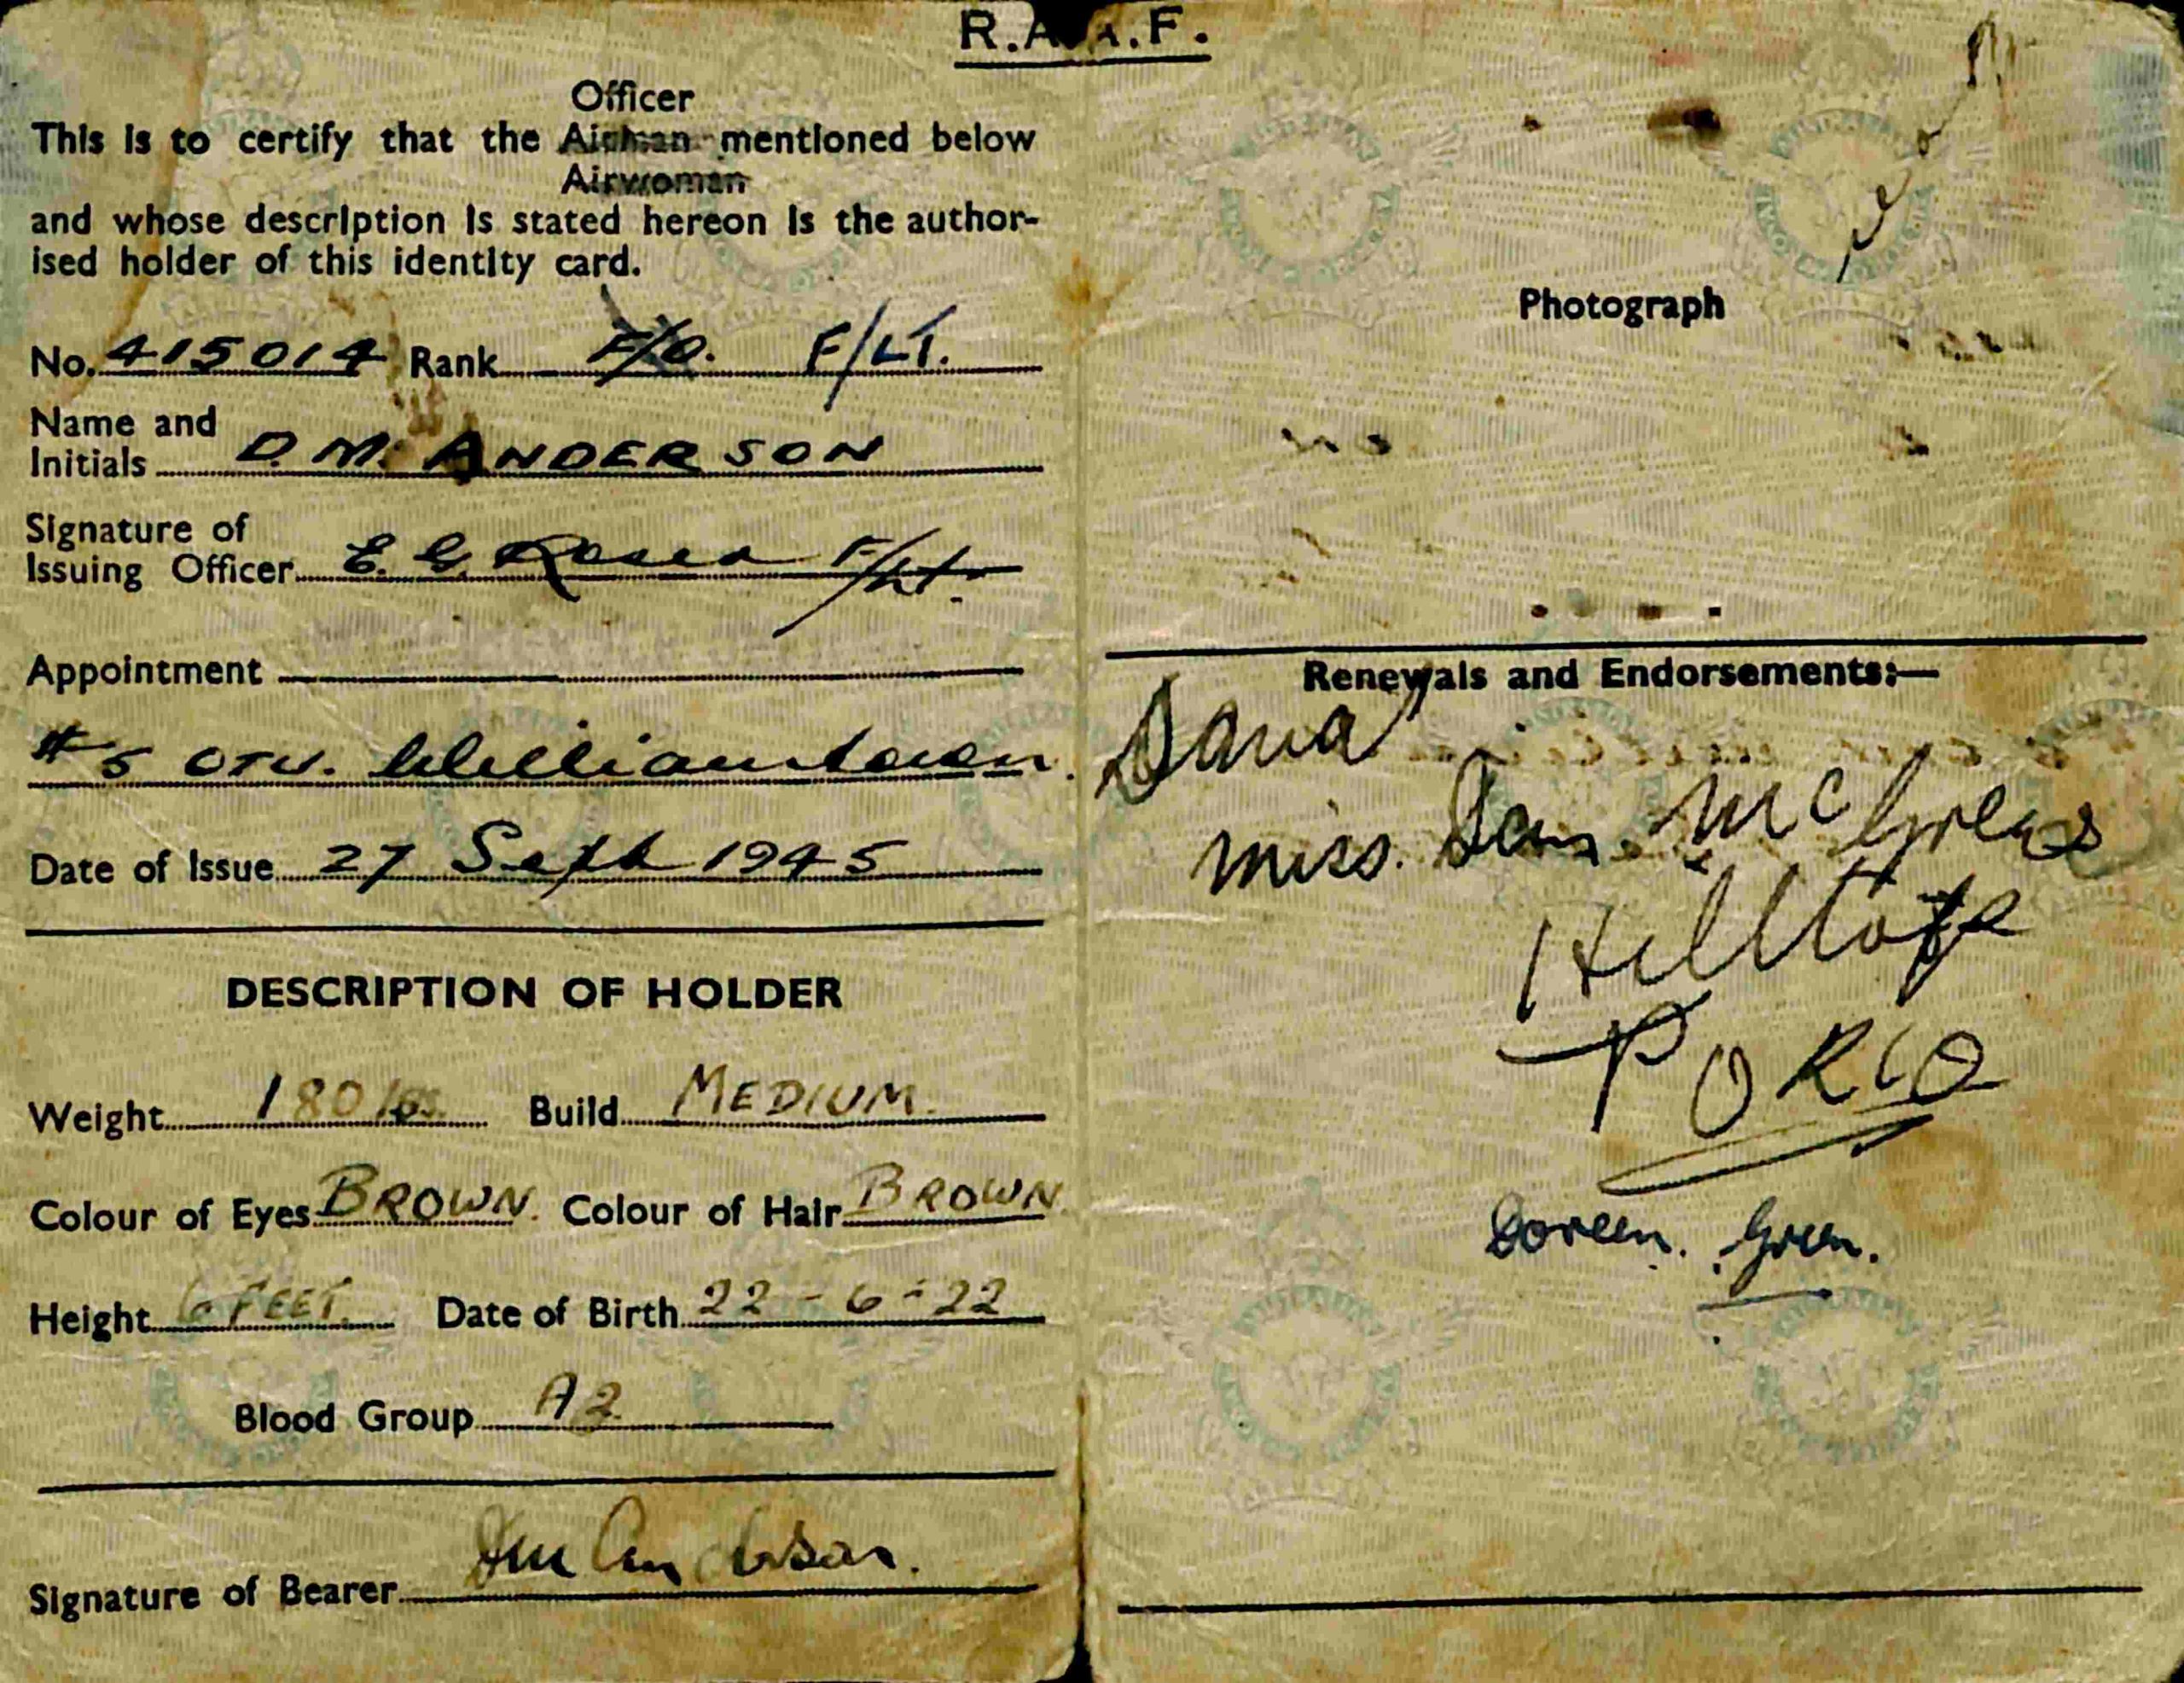 R.A.A.F.
Officer
This is to certify that the Airman mentioned below
Airwoman
and whose description is stated hereon is the author-
ised holder of this identity card.
No. 415014 Rank F/O. F/LT.
Name and
Initials D. M. ANDERSON
Signature of
Issuing Officer E. G. F/Lt.
Appointment
#5 OTU. Williamtown.
Date of Issue 27 Sept 1945
DESCRIPTION OF HOLDER
Weight 180 lbs. Build MEDIUM.
Colour of Eyes BROWN. Colour of Hair BROWN.
Height 6 FEET. Date of Birth 22-6-22
Blood Group A2
Signature of Bearer DM Anderson.
Photograph
Renewals and Endorsements:—
miss.
Hilltop
Doreen. Green.